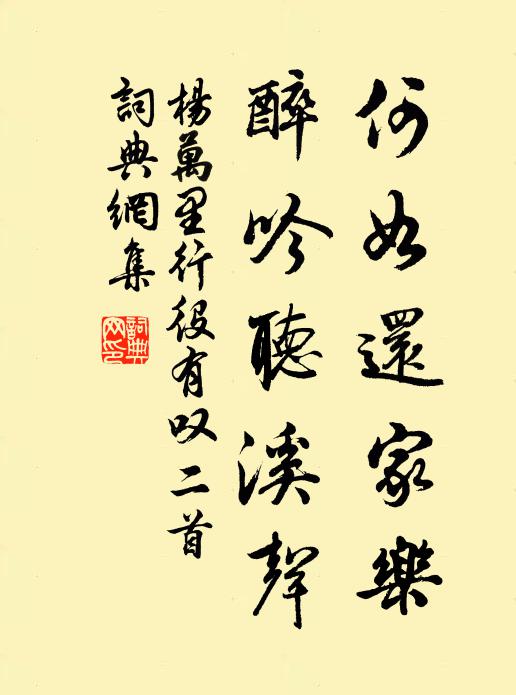 何如還家樂
醉吟聽溪聲
楊萬里行役有叹二首
詞典網集
詞典网印